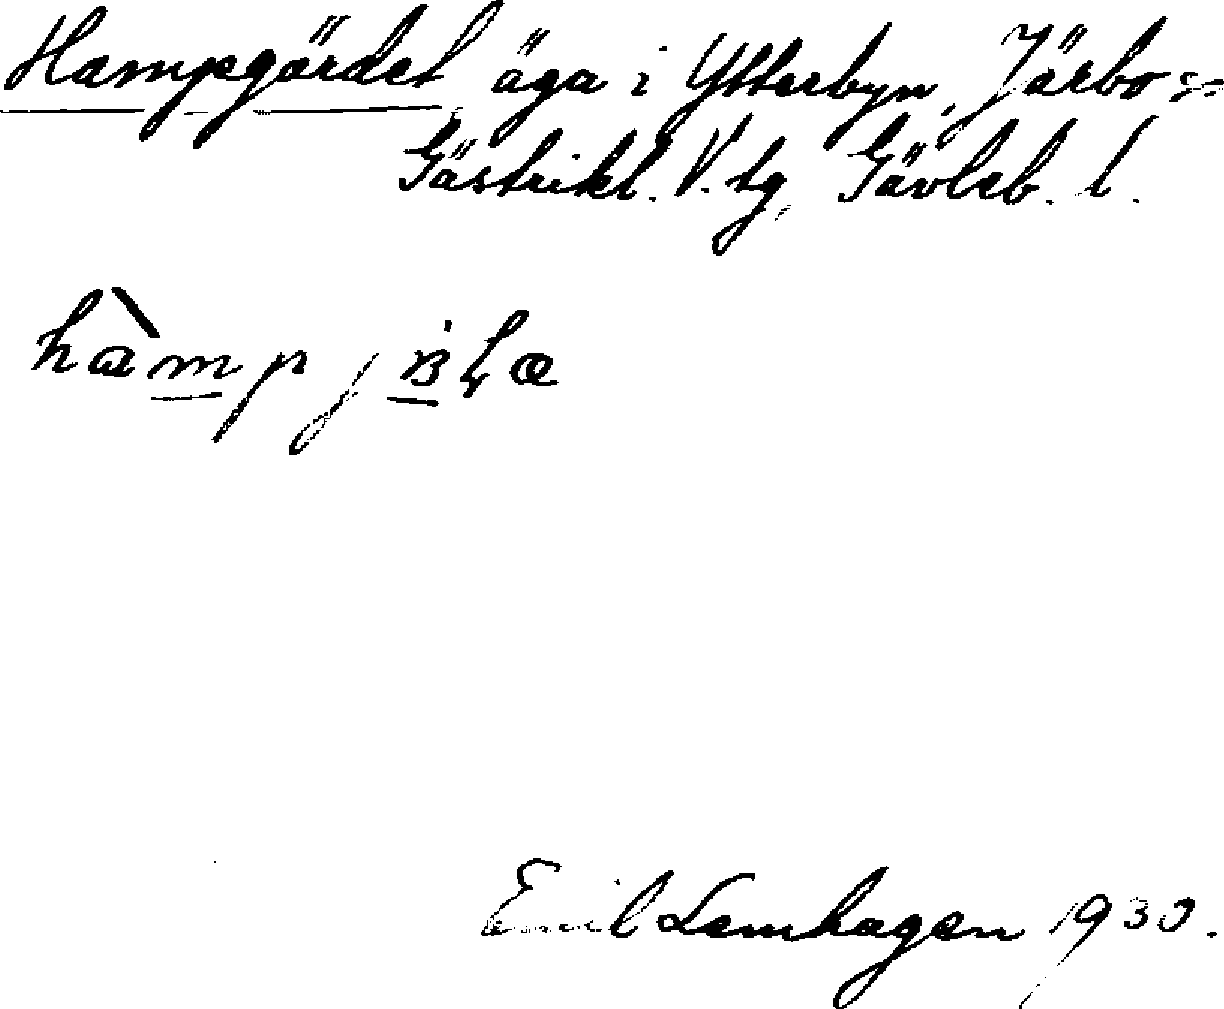 Hampgärdet äga i Ytterbyn, Järbo sn
Gästrikl. V. tg, Gävleb. l.
Emil Lemhagen 1930.